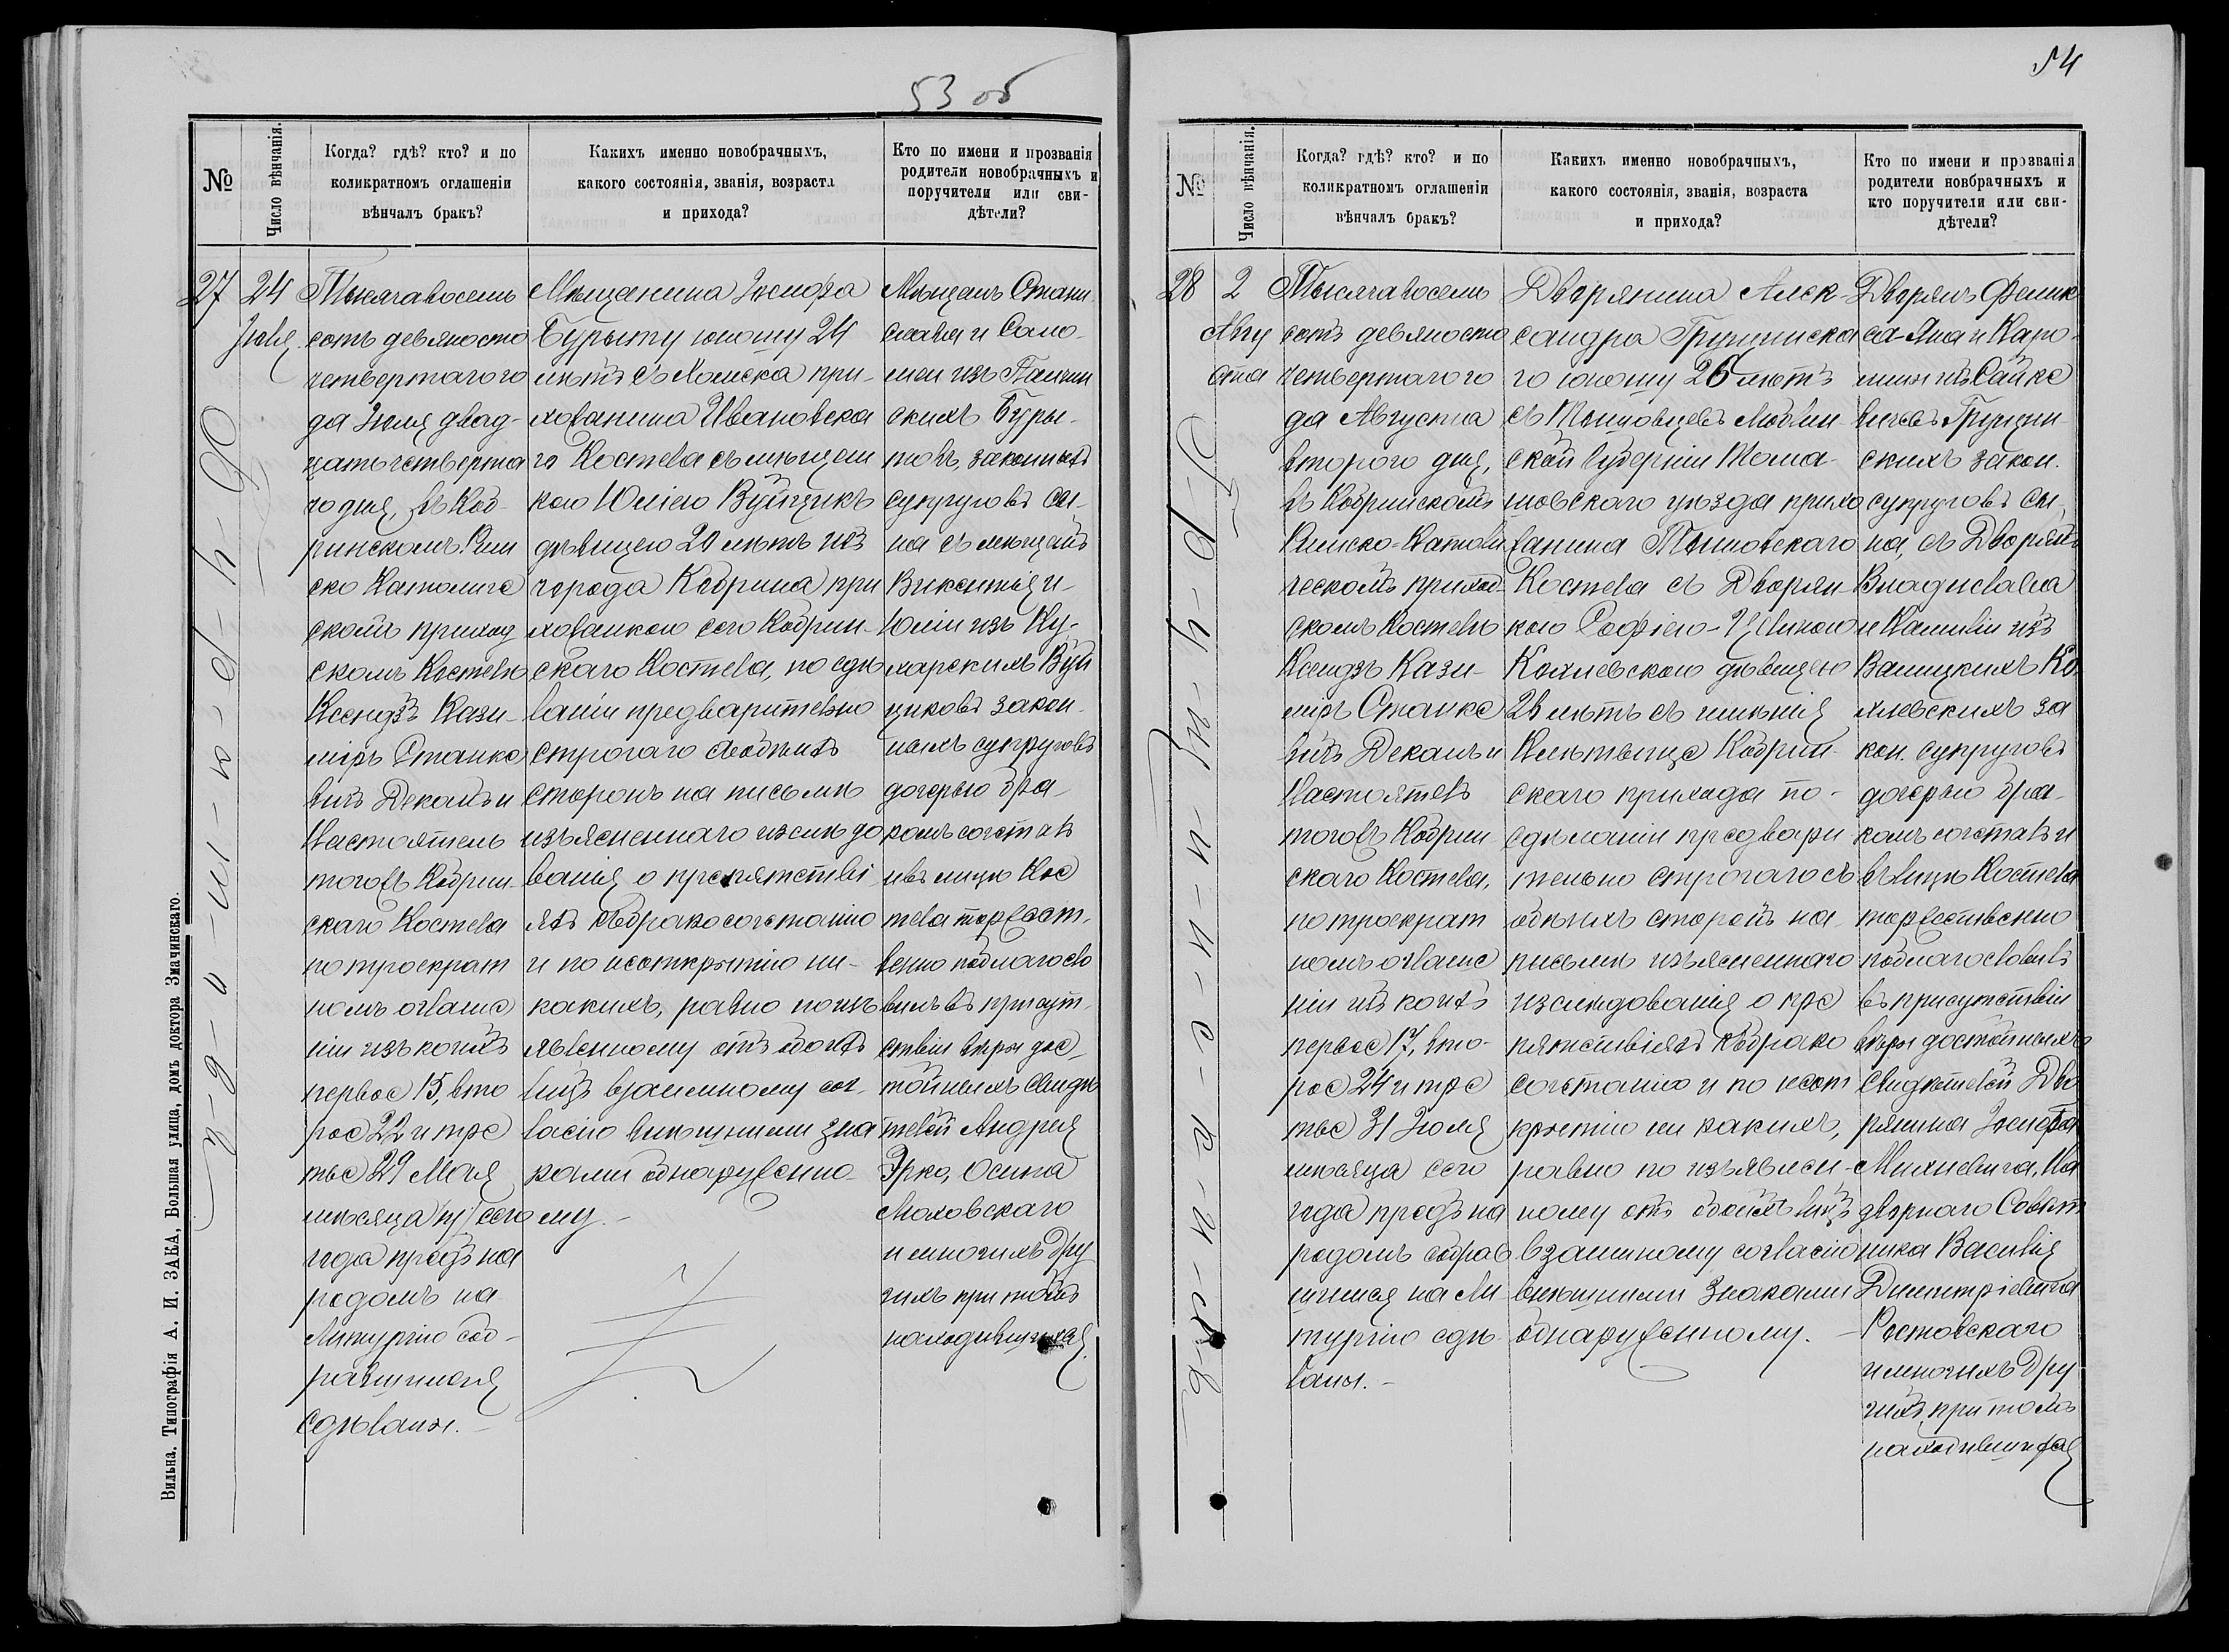 53 об
№
Число вѣнчанія.
Когда? гдѣ? кто? и по
коликратномъ оглашеніи
вѣнчалъ бракъ?
Какихъ именно новобрачныхъ,
какого состоянія, званія, возраста
и прихода?
Кто по имени и прозванія
родители новобрачныхъ и
поручители или сви-
дѣтели?
27
24
Іюля
Тысяча восемь
сотъ девяносто
четвертаго го
да Іюля двад-
цать четверта
го дня, въ Коб-
ринскомъ Рим
ско Католиче
скомъ приход
скомъ Костелѣ
Ксендзъ Кази-
миръ Станке
вичъ Деканъ и
Настоятель
тогожъ Кобрин-
скаго Костела
по троекрат
номъ оглаше
ніи изъ коихъ
первое 15, вто
рое 22 и тре
тье 29 Мая
мѣсяца сего
года предъ на
родомъ на
Литургію соб-
равшимся
сдѣланы.-
Мѣщанина Іосифа
Бурыту юношу 24
лѣтъ съ Хомска при-
хожанина Ивановска
го Костела съ мѣщан
кою Юліею Вуйцикъ
дѣвицею 20 лѣтъ изъ
города Кобрина при
хожанкою сего Кобрин-
скаго Костела, по сдѣ
ланіи предварительно
строгаго обоихъ
сторонъ на письмѣ
изъясненнаго изслѣдо
ванія о препятстві
яхъ къ бракосочетанію
и по неоткрытію ни-
какихъ, равно по изъ
явленному отъ обоихъ
лицъ взаимному сог-
ласію внѣшними зна
ками обнаруженно-
му.-
Мѣщанъ Стани
слава и Сало-
меи изъ
скихъ Буры-
товъ, законныхъ
супруговъ сы-
на съ мѣщанъ
Викентія и
Юліи изъ Ку-
харскихъ Вуй
циковъ закон
ныхъ супруговъ
дочерью бра-
комъ сочеталъ
и въ лицѣ Кос
тела торжест-
венно поблагосло
вилъ въ присут-
ствіи вѣры дос-
тойныхъ свидѣ
телей Андрея
Эрко, Осипа
Маховскаго
и многихъ дру
гихъ при томъ
находившихся.
Вильна. Типографія А. И. ЗАКА, Большая улица, домъ доктора Змачинскаго.
54
№
Число вѣнчанія.
Когда? гдѣ? кто? и по
коликратномъ оглашеніи
вѣнчалъ бракъ?
Какихъ именно новобрачныхъ,
какого состоянія, званія, возраста
и прихода?
Кто по имени и прозванія
родители новбрачныхъ и
кто поручители или сви-
дѣтели?
28
2
Авгу
ста
Тысяча восемь
сотъ девяносто
четвертаго го
да Августа
второго дня,
въ Кобринскомъ
Римско-Католи
ческомъ приход-
скомъ Костелѣ
Ксендзъ Кази-
миръ Станке
вичъ Деканъ и
Настоятель
тогожъ Кобрин-
скаго Костела,
по троекрат
номъ оглаше
ніи изъ коихъ
первое 17, вто-
рое 24 и тре
тье 31 Іюля
мѣсяца сего
года предъ на
родомъ собрав
шимся на Ли
тургію сдѣ-
ланы.-
Дворянина Алек-
сандра Грущинска
го юношу 26 лѣтъ
съ Тышовцевъ Люблин
ской Губерніи Тома-
шовскаго уѣзда прихо
жанина Тышовскаго
Костела съ Дворян-
кою Софіею-
дѣвицею
лѣтъ съ имѣнія
Кобрин-
скаго прихода по-
сдѣланіи предвари
тельно строгаго съ
обѣихъ сторонъ на
письмѣ изъясненнаго
изслѣдованія о пре
пятствіяхъ къ брако
сочетанію и по неот
крытію ни какихъ,
равно по изъявлен-
ному отъ обоихъ лицъ
взаимному согласію
внѣшними знаками
обнаруженному.-
Дворянъ Фелик
са-Яна и Каро-
лины изъ Сайке
вичевъ Грущин
скихъ закон.
супруговъ сы-
на, съ Дворянъ
Владислава
и Камиліи изъ
Валицкихъ Ко-
за
кон. супруговъ
дочерью бра-
комъ сочеталъ и
въ лицѣ Костела
торжественно
поблагословилъ
въ присутствіи
вѣры достойныхъ
Свидѣтелей Дво
рянина Іосифа
Михневича, На
дворнаго Совѣт
ника Василія
Димитріевича
Ростовскаго
и многихъ дру
гихъ, при томъ
находившихся